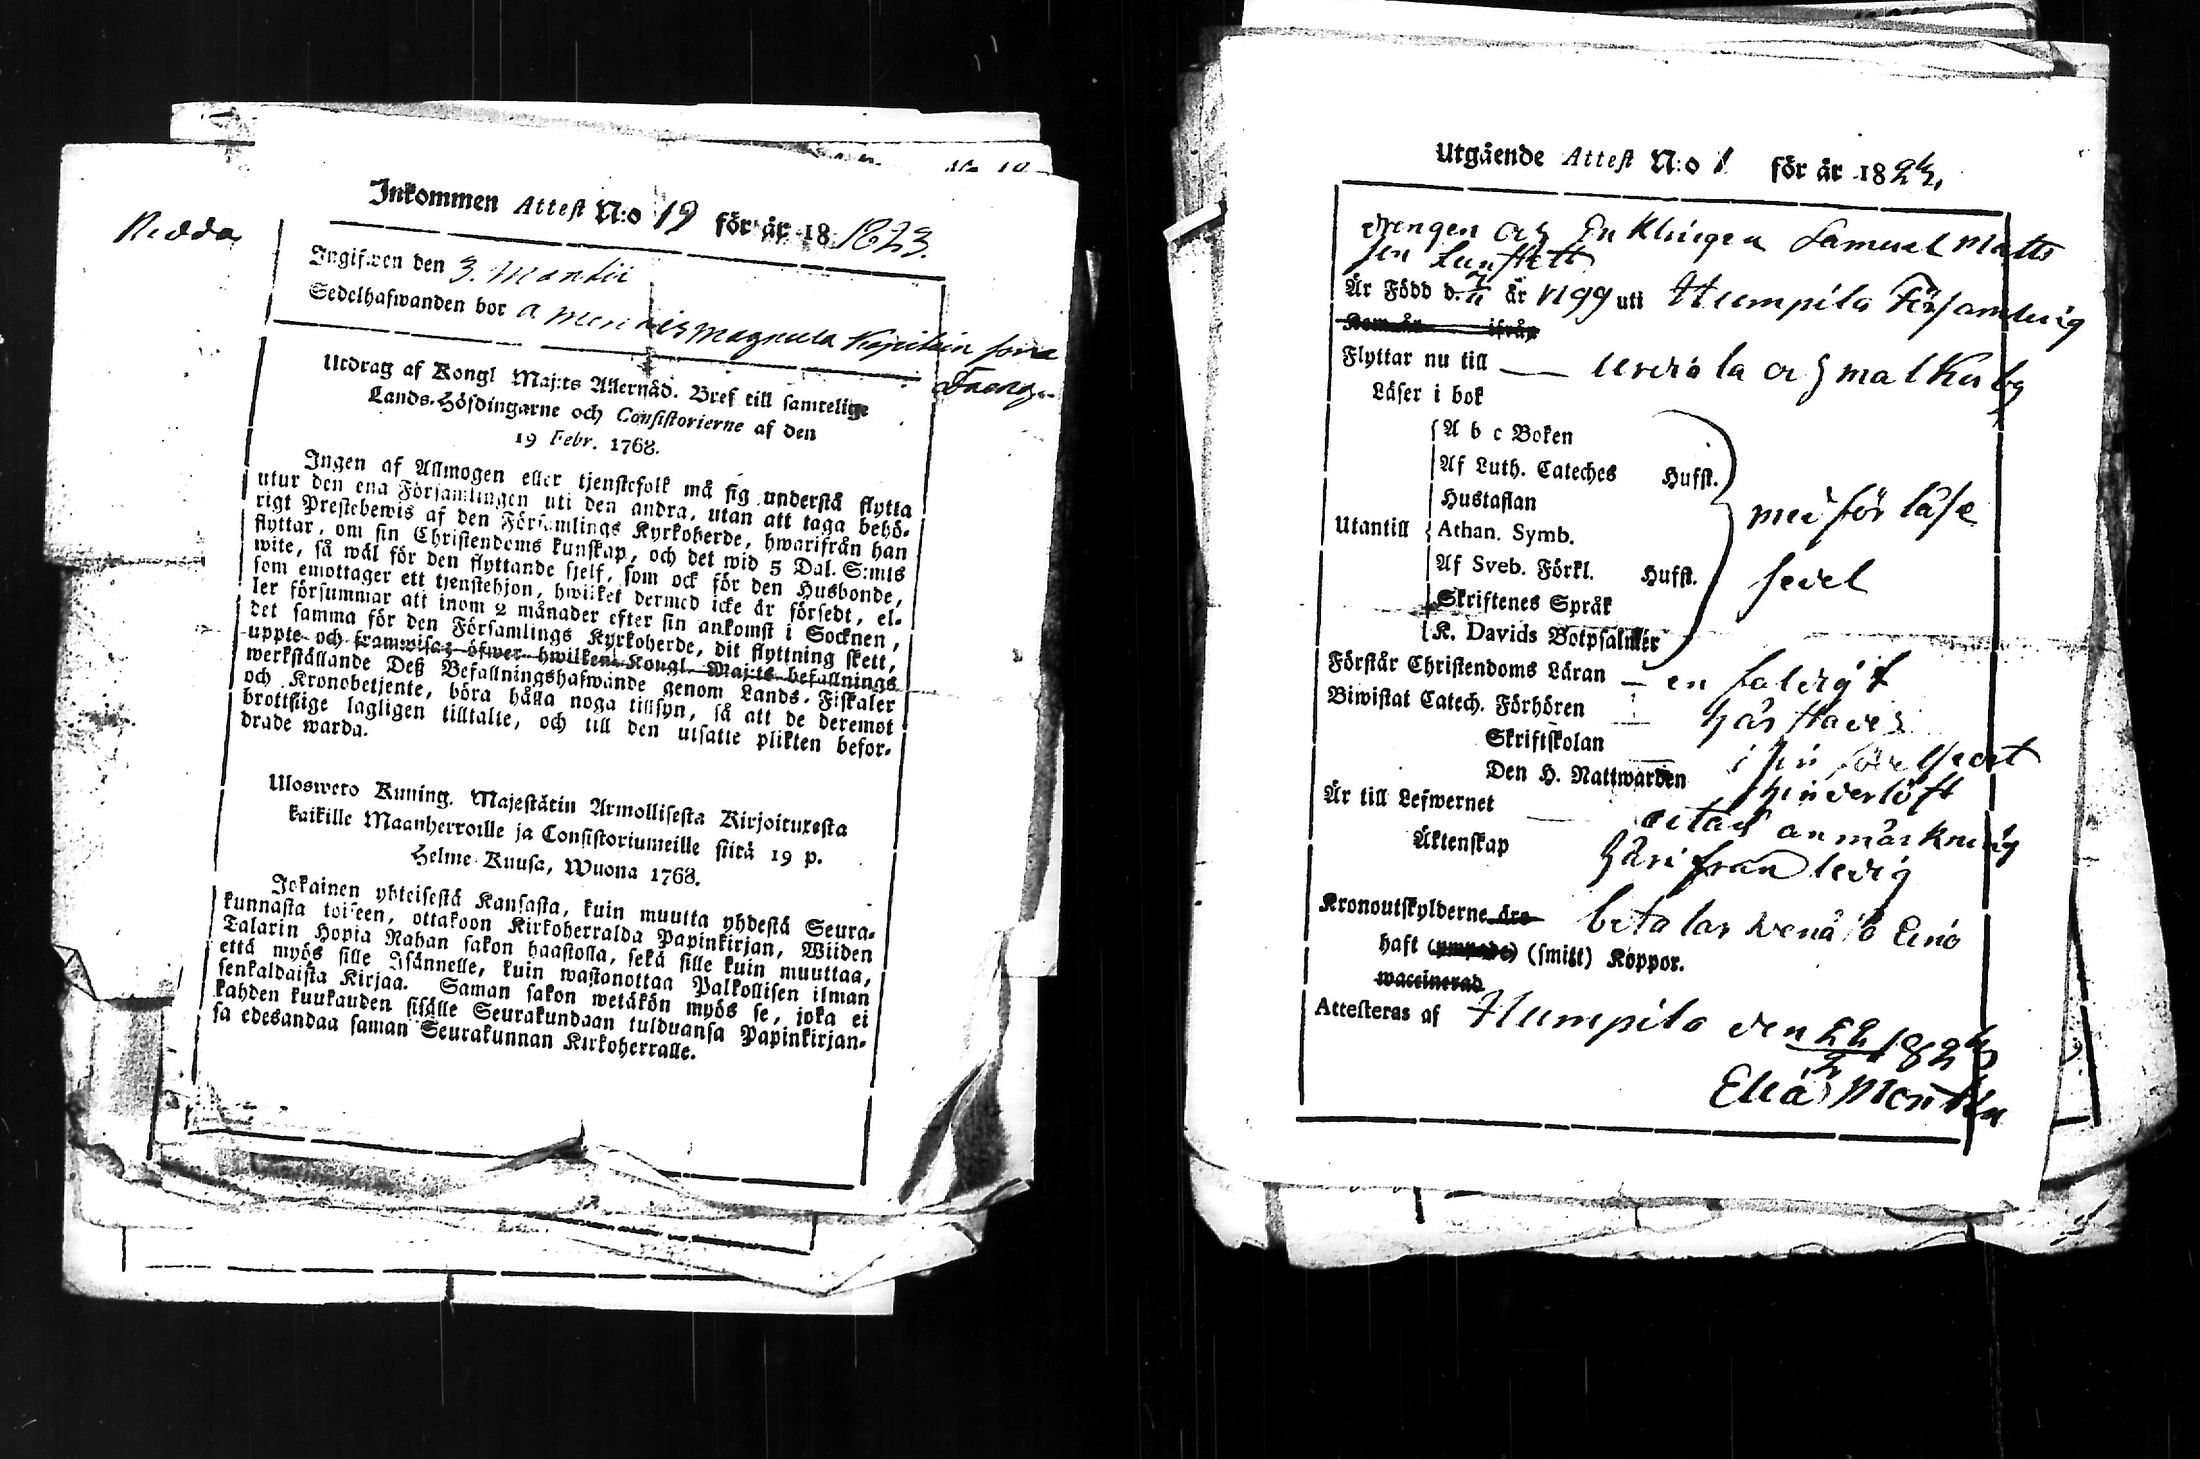 Inkommen Attest N:o 19 för år 18 1823.
Ingifwen den 3. Martii
Sedelhafwanden bor
Utdrag af Kongl Maj:ts Allernåd. Bref till samtelige
Lands-Höfdingarne och Consistorierne af den
19 Febr. 1768.
Ingen af Allmogen eller tjenstefolk må sig understå flytta
utur den ena Församlingen uti den andra, utan att taga behö-
rigt Prestebewis af den Församlings Kyrkoherde, hwarifrån han
flyttar, om sin Christendoms kunskap, och det wid 5 Dal. S:mts
wite, så wäl för den flyttande sjelf, som ock för den Husbonde,
som emottager ett tjenstehjon, hwilket dermed icke är försedt, el-
ler försummar att inom 2 månader efter sin ankomst i Socknen,
det samma för den Församlings Kyrkoherde, dit flyttning skett,
uppte och framwisa; öfwer hwilken Kongl. Maj:ts befallnings
werkställande Deß Befallningshafwande genom Lands-Fiskaler
och Kronobetjente, böra hålla noga tillsyn, så att de deremot
brottslige lagligen tilltalte, och till den utsatte plikten befor-
drade warda.
Ulosweto Kuning. Majestätin Armollisesta Kirjoituxesta
kaikille Maanherroille ja Consistoriumeille siitä 19 p.
Helme-Kuusa, Wuona 1768.
Jokainen yhteisestä Kansasta, kuin muutta yhdestä Seura-
kunnasta toiseen, ottakoon Kirkoherralda Papinkirjan, Wiiden
Talarin Hopia Rahan sakon haastolla, sekä sille kuin muuttaa,
että myös sille Isännelle, kuin wastanottaa Palkollisen ilman
senkaldaista Kirjaa. Saman sakon wetäkön myös se, joka ei
kahden kuukauden sisälle Seurakundaan tulduansa Papinkirjan-
sa edesandaa saman Seurakunnan Kirkoherralle.
Utgående Attest N:o 1 för år 18
Drengen och Enklingen Samuel Matts
son
Är Född d. år 1799 uti Humpila Församling
Kom år ifrån
Flyttar nu till Urdiala och
Läser i bok
A b c Boken
Af Luth. Cateches Hufst.
Hustaflan
Utantill Athan. Symb.
Af Sveb. Förkl. Hufst.
Skriftenes Språk
K. Davids Botpsalmer
medför läse
sedel
Förstår Christendoms Läran enfaldigt
Biwistat Catech. Förhören
Skriftskolan
Den H. Nattwarden
Är till Lefwernet utan anmärkning
Äktenskap härifrån ledig
Kronoutskylderne äro betalar
haft (smitt) Koppor.
waccinerad
Attesteras af Humpila den